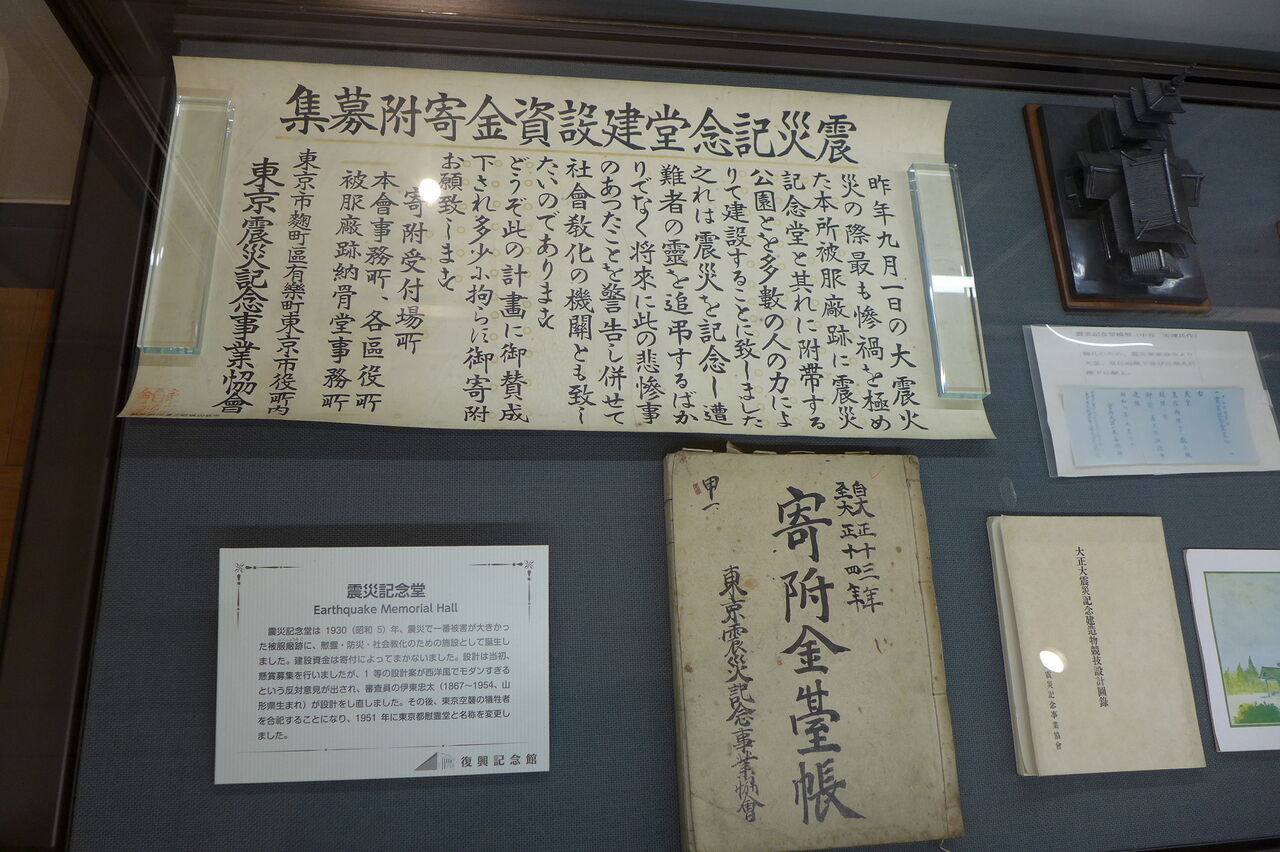 震災記念堂建設資金寄附募集
昨年九月一日の大震火
災の際最も惨禍を極め
た本所被服廠跡に震災
記念堂と其れに附帯する
公園とを多數の人の力によ
りて建設することに致しました
之れは震災を記念し遭
難者の靈を追弔するばか
りでなく将来に此の悲惨事
のあつたことを警告し併せて
社會教化の機關とも致し
たいのであります
どうぞ此の計畫に御賛成
下され多少に拘らに御寄附
お願致します
寄附受付場所
本會事務所、各區役所
被服廠跡納骨堂事務所
東京市麹町區有樂町東京市役所内
東京震災記念事業協會
震災記念堂
Earthquake Memorial Hall
震災記念堂は 1930（昭和 5）年、震災で一番被害が大きかっ
た被服廠跡に、慰霊・防災・社会教化のための施設として誕生し
ました。建設資金は寄付によってまかないました。設計は当初、
懸賞募集を行いましたが、1 等の設計案が西洋風でモダンすぎる
という反対意見が出され、審査員の伊東忠太（1867～1954、山
形県生まれ）が設計をし直しました。その後、東京空襲の犠牲者
を合祀することになり、1951 年に東京都慰霊堂と名称を変更し
ました。
復興記念館
自大正十三年
至大正十四年
寄附金臺帳
甲一
東京震災記念事業協會
大正大震災記念建造物競技設計圖錄
震災記念事業協會